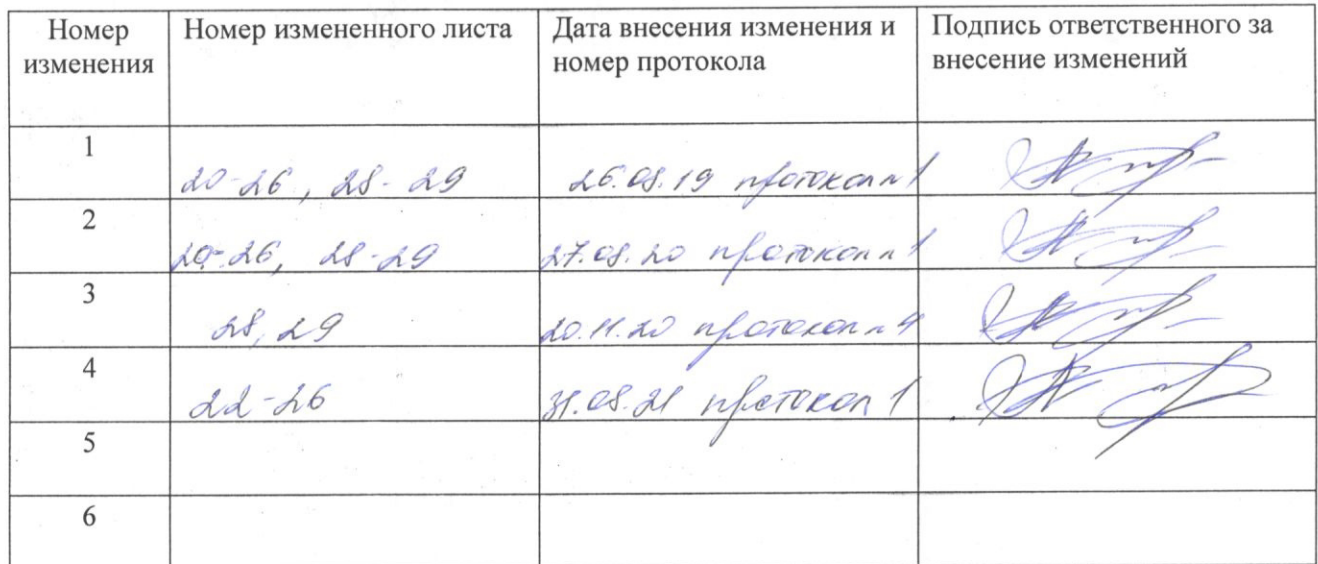 Номер изменения | Номер измененного листа | Дата внесения изменения и номер протокола | Подпись ответственного за внесение изменений
1 | 20-26, 28-29 | 26.08.19 протокол № 1
2 | 20-26, 28-29 | 27.08.20 протокол № 1
3 | 28, 29 | 20.11.20 протокол № 4
4 | 22-26 | 31.08.21 протокол 1
5
6